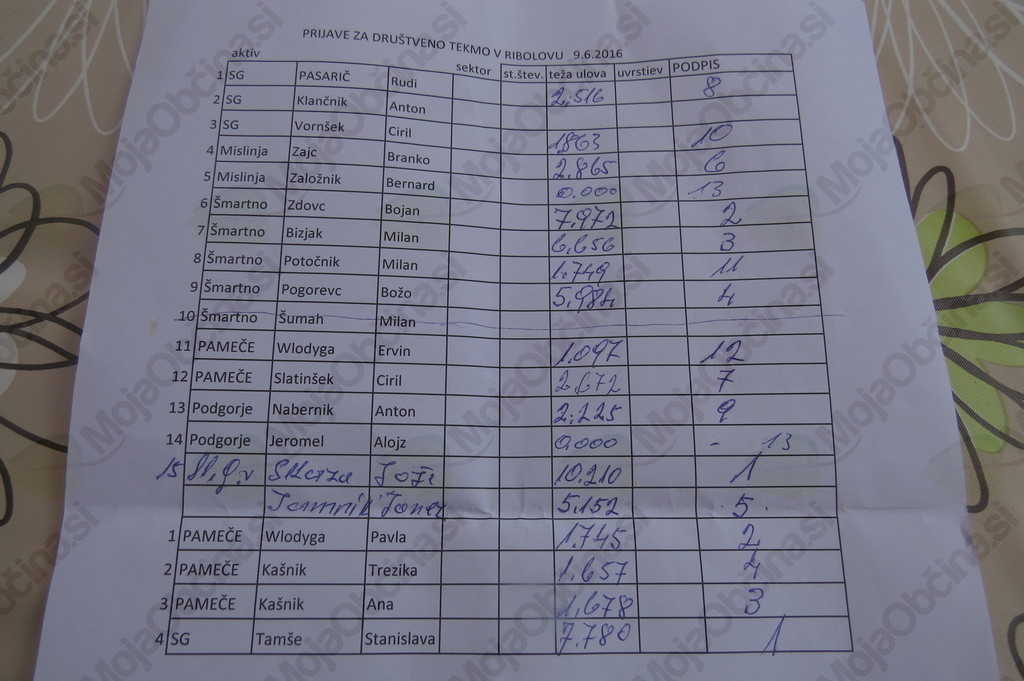 PRIJAVE ZA DRUŠTVENO TEKMO V RIBOLOVU 9.6.2016
aktiv sektor st.štev. teža ulova uvrstiev PODPIS
1 SG PASARIČ Rudi 2,516 8
2 SG Klančnik Anton
3 SG Vornšek Ciril 1,863 10
4 Mislinja Zajc Branko 2.865 6
5 Mislinja Založnik Bernard 0.000 13
6 Šmartno Zdovc Bojan 7.972 2
7 Šmartno Bizjak Milan 6,656 3
8 Šmartno Potočnik Milan 1.749 11
9 Šmartno Pogorevc Božo 5,984 4
10 Šmartno Šumah Milan
11 PAMEČE Wlodyga Ervin 1.097 12
12 PAMEČE Slatinšek Ciril 2.672 7
13 Podgorje Nabernik Anton 2.225 9
14 Podgorje Jeromel Alojz 0,000 - 13
15 Skaza Joži 10.210 1
Jamnik Janez 5,152 5.
1 PAMEČE Wlodyga Pavla 1.745 2
2 PAMEČE Kašnik Trezika 1.657 4
3 PAMEČE Kašnik Ana 1,678 3
4 SG Tamše Stanislava 7.780 1
MojaObčina.si